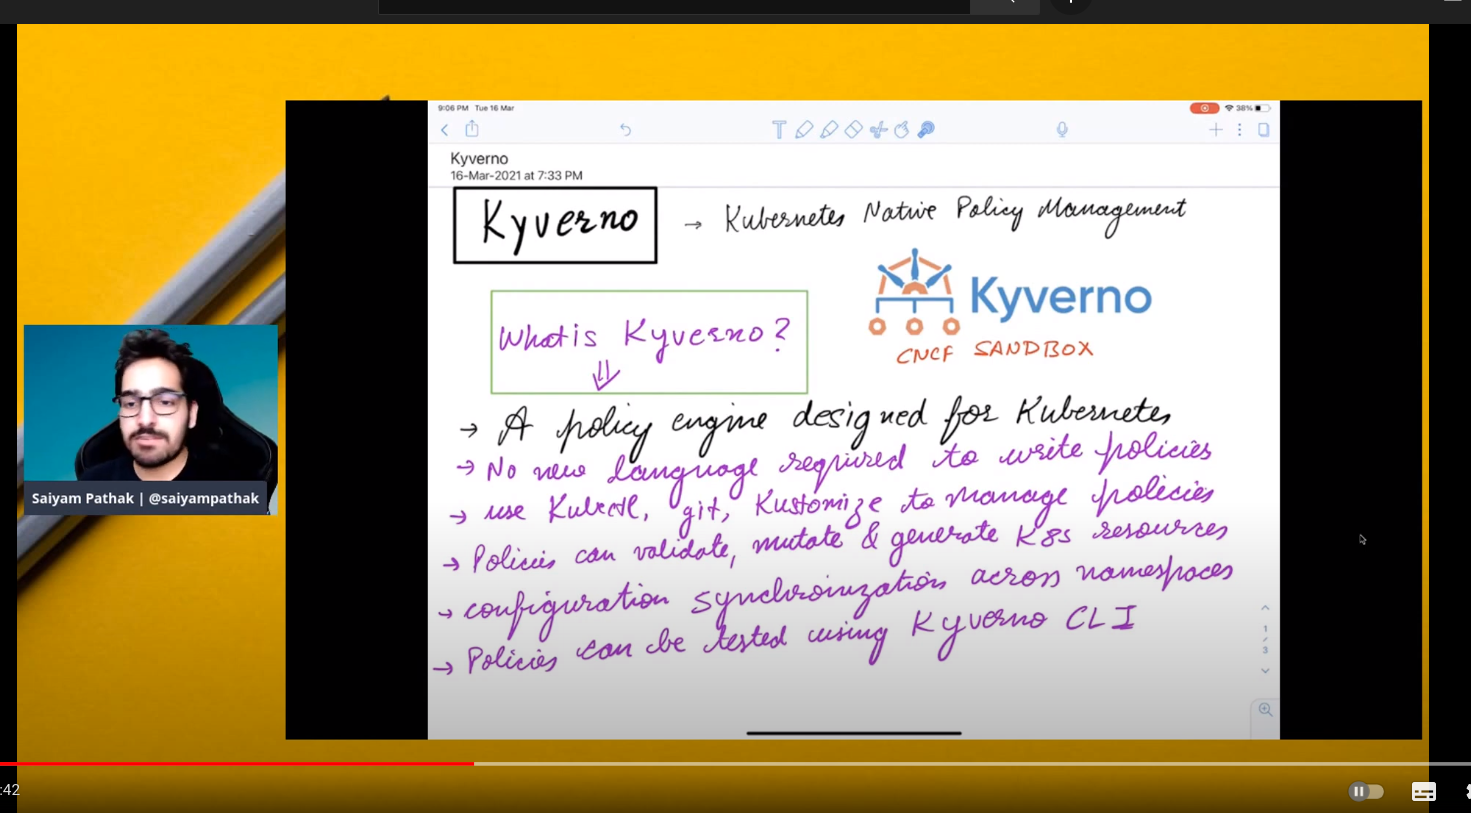 9:06 PM Tue 16 Mar
38%
Kyverno
16-Mar-2021 at 7:33 PM
Kyverno → Kubernetes Native Policy Management
Kyverno
CNCF SANDBOX
What is Kyverno?
→ A policy engine designed for Kubernetes
→ No new language required to write policies
→ use Kubectl, git, Kustomize to manage policies
→ Policies can validate, mutate & generate K8s resources
→ configuration synchronization across namespaces
→ Policies can be tested using Kyverno CLI
1
/
3
Saiyam Pathak | @saiyampathak
:42